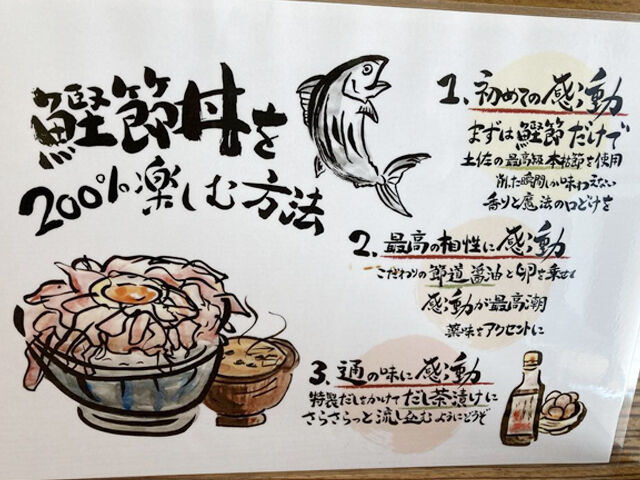 鰹節丼を
200%楽しむ方法
1、初めての感動
まずは鰹節だけで
土佐の最高級本枯節を使用
削た瞬間しか味わえない
香りと魔法の口どけを
2、最高の相性に感動
こだわりの節道醤油と卵を乗せ
感動が最高潮
薬味をアクセントに
3、通の味に感動
特製だしをかけてだし茶漬けに
さらさらっと流し込むようにどうぞ